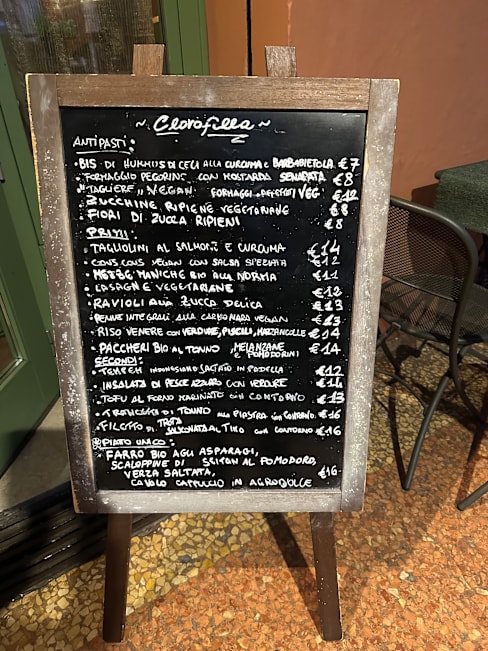 ~ Clorofilla ~
ANTIPASTI:
• BIS DI HUMMUS DI CECI ALLA CURCUMA E BARBABIETOLA € 7
• FORMAGGIO PECORINO CON MOSTARDA SENAPATA € 8
• "TAGLIERE" VEGAN FORMAGGI AFFETTATI VEG € 12
• ZUCCHINE RIPIENE VEGETARIANE € 8
• FIORI DI ZUCCA RIPIENI € 8
PRIMI:
• TAGLIOLINI AL SALMONE E CURCUMA € 14
• COUS COUS VEGAN CON SALSA SPEZIATA € 12
• MEZZE MANICHE BIO ALLA NORMA € 11
• LASAGNE VEGETARIANE € 12
• RAVIOLI ALLA ZUCCA DELICA € 13
• PENNE INTEGRALI ALLA CARBONARA VEGAN € 13
• RISO VENERE CON VERDURE, PISELLI, MAZZANCOLLE € 14
• PACCHERI BIO AL TONNO, MELANZANE E POMODORINI € 14
SECONDI:
• TEMPEH INDONESIANO SALTATO IN PADELLA € 12
• INSALATA DI PESCE AZZURRO CON VERDURE € 14
• TOFU AL FORNO MARINATO CON CONTORNO € 13
• TRANCETTO DI TONNO ALLA PIASTRA CON CONTORNO € 16
• FILETTO DI TROTA SALMONATA AL TIMO CON CONTORNO € 16
PIATTO UNICO:
FARRO BIO AGLI ASPARAGI,
SCALOPPINE DI SEITAN AL POMODORO,
VERZA SALTATA, € 16
CAVOLO CAPPUCCIO IN AGRODOLCE